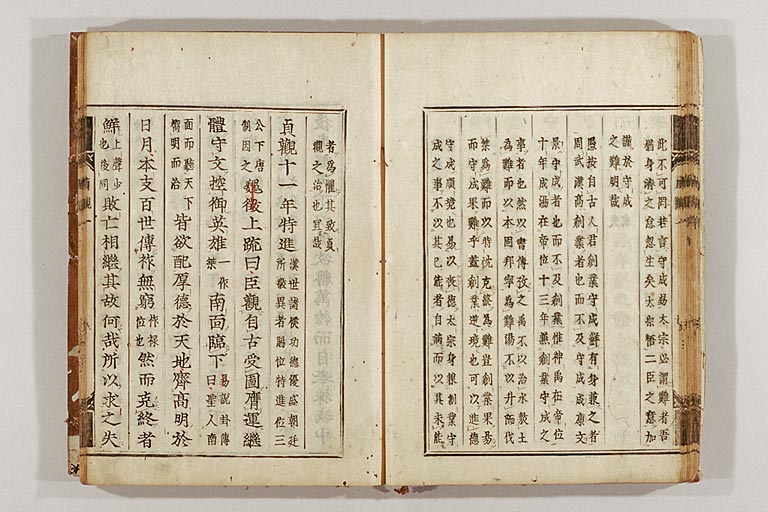 此不可罔若言守成易太宗必謂難者吾
猶身濟之怠忽生矣太宗悟二臣之意加
謹於守成
之難明哉
愚按自古人君創業守成鮮有身兼之者
周武漢高創業者也而不及守成成康文
景守成者也而不及創業惟神禹在帝位
十年成湯在帝位十三年兼創業守成之
事者也然以書傳攷之禹不以治水敷土
為難而以本固邦寧為難湯不以升而伐
桀為難而以特忱克終為難豈創業果易
而守成果難乎蓋創業逆境也可以進德
守成順境也易以喪德太宗身兼創業守
成之事不以其已能者自滿而以其未能
者為懼其致貞
觀之治也宜哉
貞觀十一年特進漢世諸侯功德優盛朝廷所敬異者賜位特進位三
公下唐制因之魏徵上疏曰臣觀自古受圖膺運繼
體守文控御英雄一作傑南面臨下易說卦傳曰聖人南
面而聽天下嚮明而治皆欲配厚德於天地齊高明於
日月本支百世傳祚無窮祚祿位也然而克終者
鮮上聲少也後同敗亡相繼其故何哉所以求之失